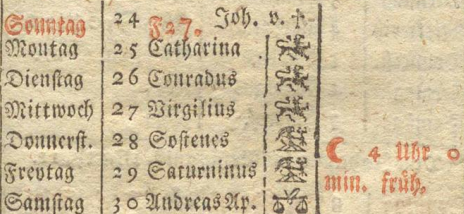 Sonntag 24 F27. Joh. v. +
Montag 25 Catharina
Dienſtag 26 Conradus
Mittwoch 27 Virgilius
Donnerſt. 28 Soſtenes
Freytag 29 Saturninus
Samſtag 30 Andreas Ap.
☾ 4 Uhr 0
min. früh,